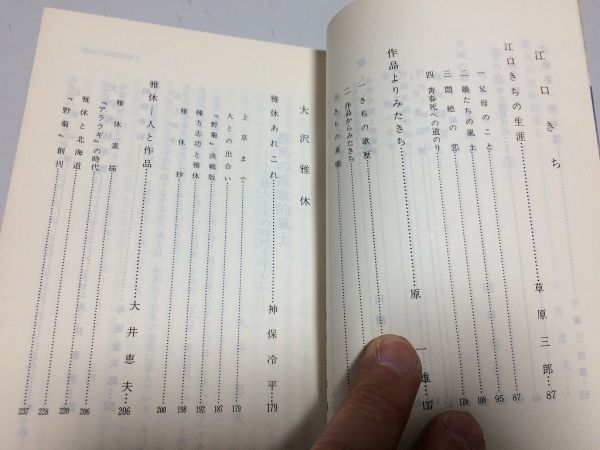 江口きち
江口きちの生涯……草原三郎…87
一 父母のこと……87
二 娘たちの風土……95
三 悶絶の恋……108
四 青春死への道のり……124
作品よりみたきち……原 一雄…137
一 きちの歌歴
二 作品からみたきち
三 きちの真価
大沢雅休
雅休あれこれ……神保冷平…179
上京まで……179
人との出合い……187
『野菊』決戦版……192
棟方志功と雅休……198
雅休抄……200
雅休―人と作品……大井恵夫…206
雅休素描……206
『アララギ』の時代……220
雅休と北海道……228
『野菊』創刊……237